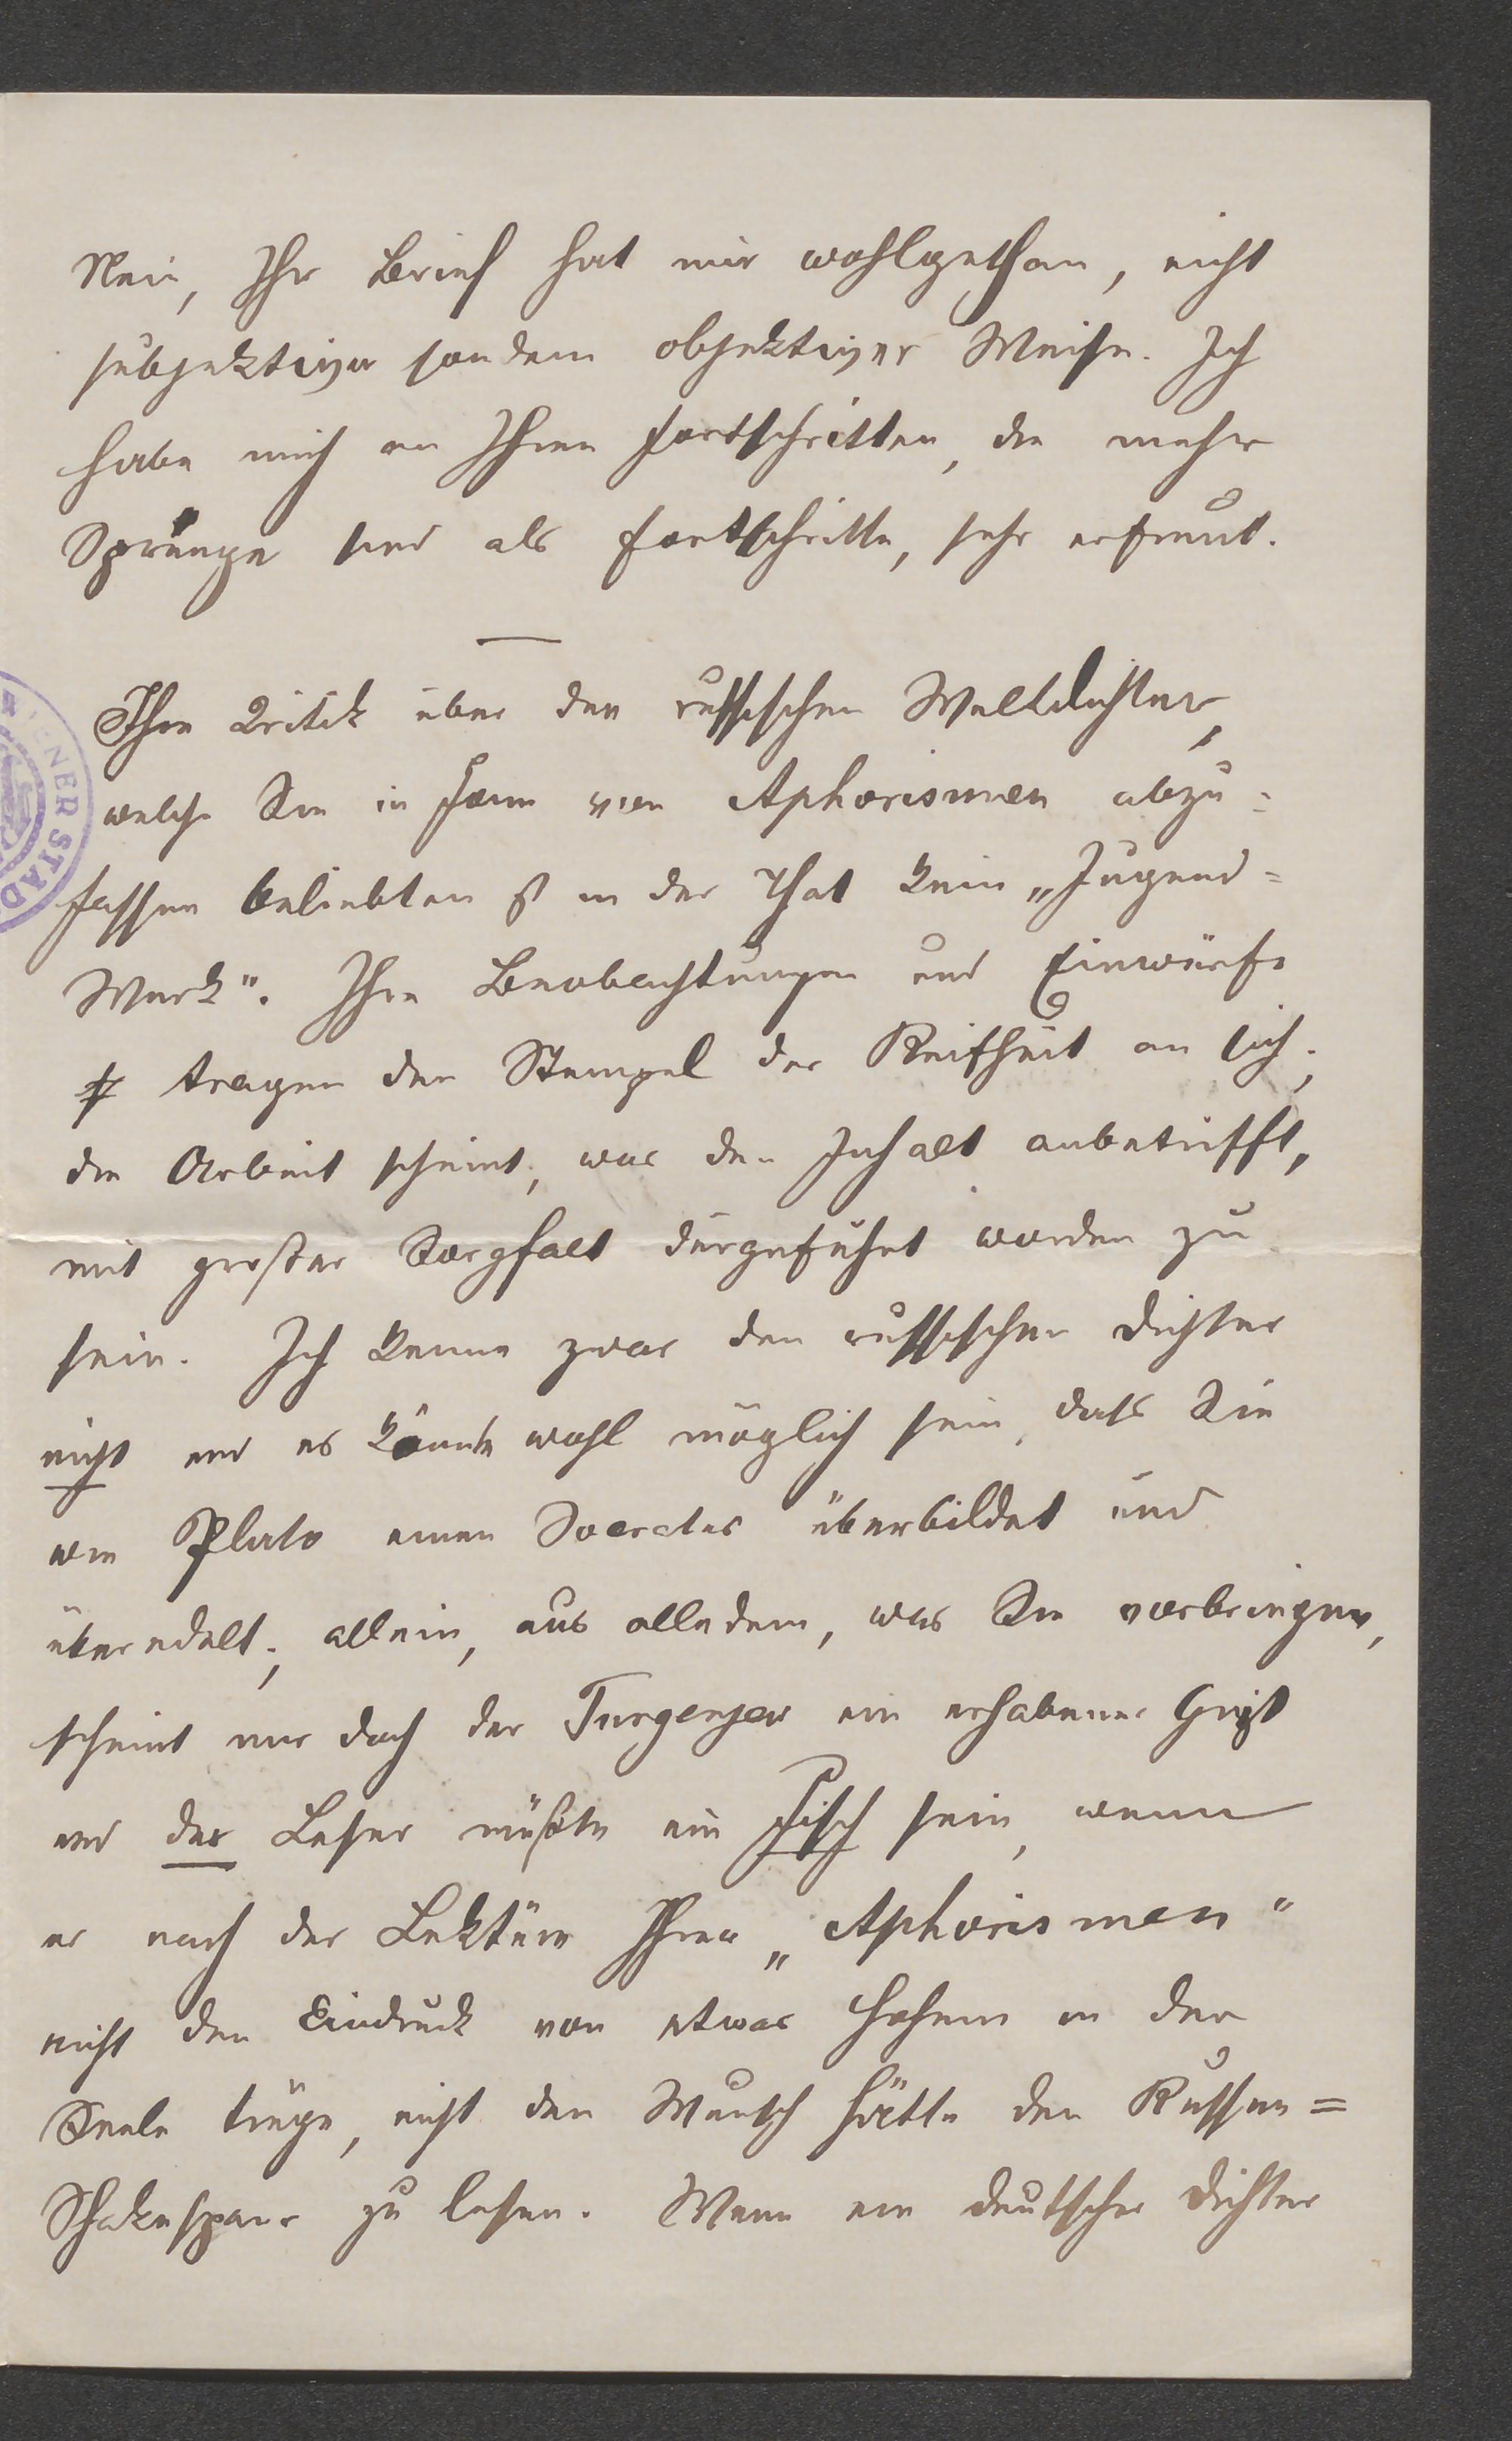 Nein, Ihr Brief hat mir wohlgethan, nicht
subjektiver sondern objektiver Weise. Ich
habe mich an Ihren Fortschritten, die mehr
Sprünge sind als Fortschritte, sehr erfreut.
Ihre Kritik über den russischen Weltdichter,
welche Sie in Form von Aphorismen abzu=
fassen beliebten ist in der That kein „Jugend=
Werk“. Ihre Beobachtungen und Einwürfe
tragen den Stempel der Reifheit an sich;
die Arbeit scheint, was den Inhalt anbetrifft,
mit großer Sorgfalt durgeführt worden zu
sein. Ich kenne zwar den russischen Dichter
nicht und es könnte wohl möglich sein, dass Sie
wie Plato einen Socrates überbildet und
überedelt; allein, aus alledem, was Sie vorbringen,
scheint mir doch der Turgenjew ein erhabener Geist
und der Leser müßte ein Fisch sein, wenn
er nach der Lektüre Ihrer „Aphorismen“
nicht den Eindruck von etwas Hohem in der
Seele trüge, nicht den Wunsch hätte den Russen=
Shakespeare zu lesen. Wenn ein deutscher Dichter
ENER STAD